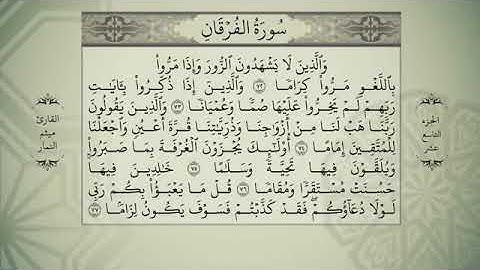 سُورَةُ الفُرْقَانِ
وَالَّذِينَ لَا يَشْهَدُونَ الزُّورَ وَإِذَا مَرُّوا
بِاللَّغْوِ مَرُّوا كِرَامًا ٧٢ وَالَّذِينَ إِذَا ذُكِّرُوا بِآيَاتِ
رَبِّهِمْ لَمْ يَخِرُّوا عَلَيْهَا صُمًّا وَعُمْيَانًا ٧٣ وَالَّذِينَ يَقُولُونَ
رَبَّنَا هَبْ لَنَا مِنْ أَزْوَاجِنَا وَذُرِّيَّاتِنَا قُرَّةَ أَعْيُنٍ وَاجْعَلْنَا
لِلْمُتَّقِينَ إِمَامًا ٧٤ أُولَٰئِكَ يُجْزَوْنَ الْغُرْفَةَ بِمَا صَبَرُوا
وَيُلَقَّوْنَ فِيهَا تَحِيَّةً وَسَلَامًا ٧٥ خَالِدِينَ فِيهَا
حَسُنَتْ مُسْتَقَرًّا وَمُقَامًا ٧٦ قُلْ مَا يَعْبَأُ بِكُمْ رَبِّي
لَوْلَا دُعَاؤُكُمْ فَقَدْ كَذَّبْتُمْ فَسَوْفَ يَكُونُ لِزَامًا ٧٧
الجزء
التاسع
عشر
القارئ
ميثم
التمار